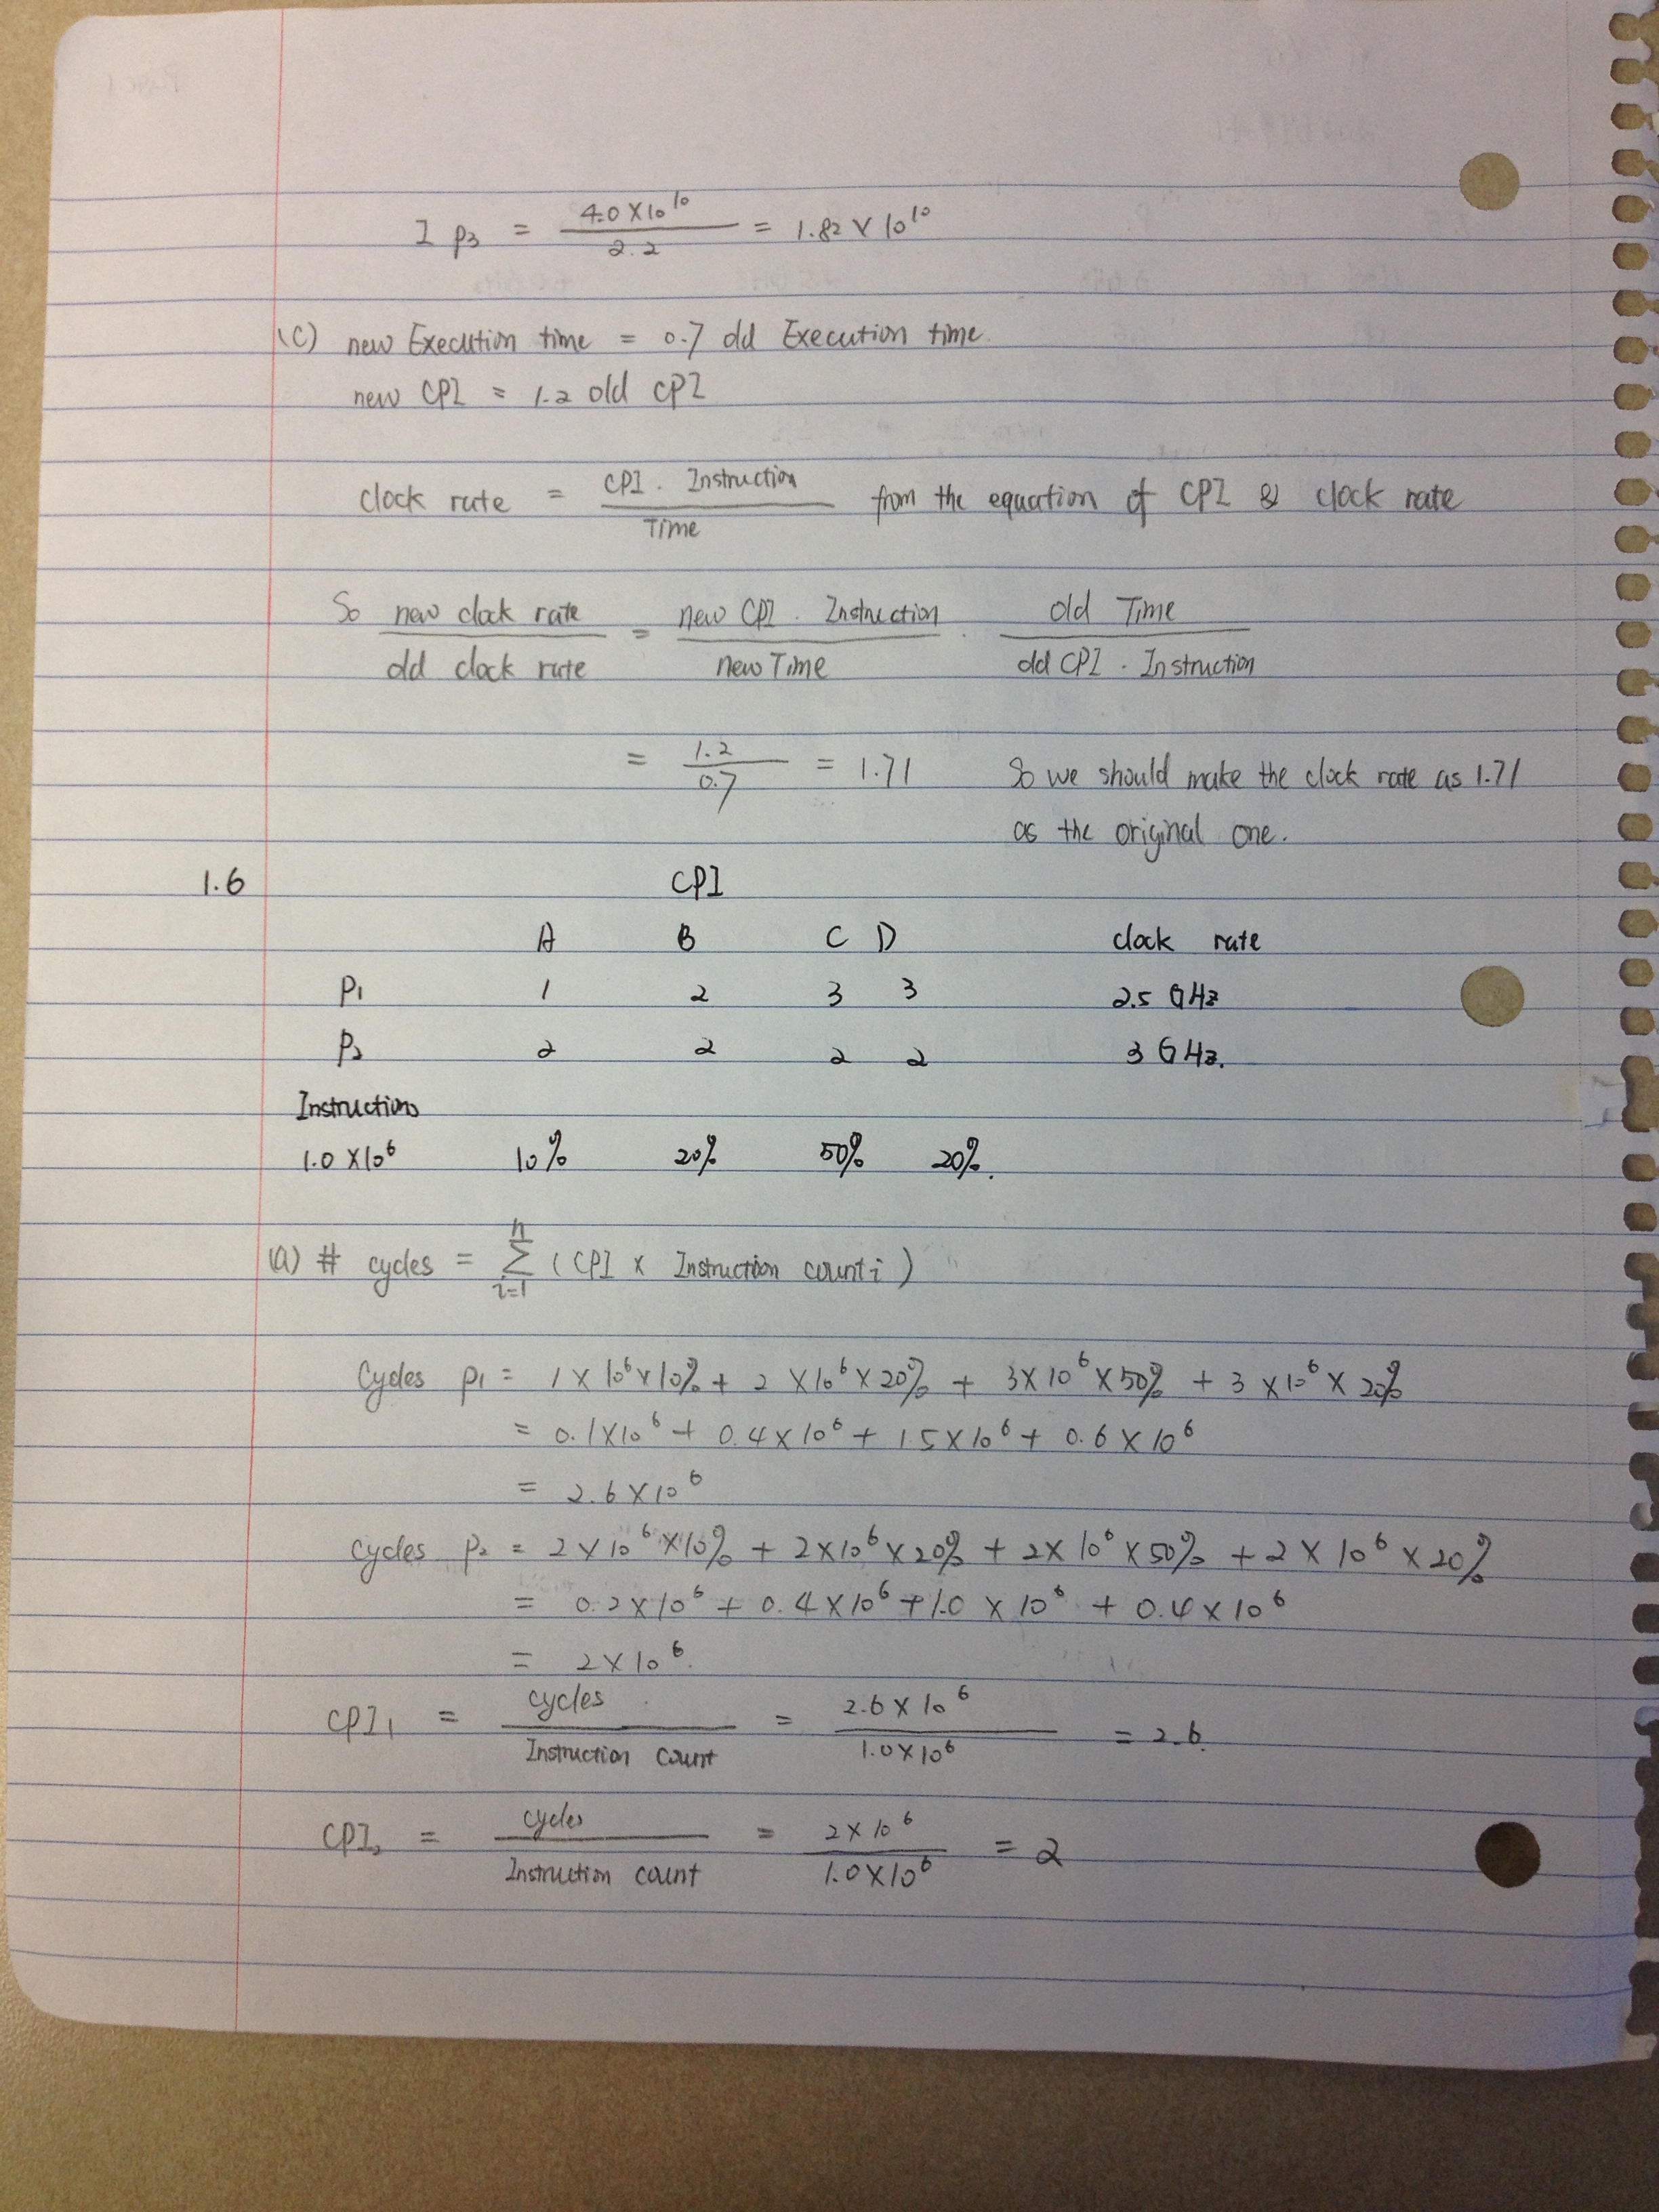 I P3 = 4.0 X 10^10 / 2.2 = 1.82 X 10^10
(C) new Execution time = 0.7 old Execution time.
new CPI = 1.2 old CPI
clock rate = CPI . Instruction / Time from the equation of CPI & clock rate
So new clock rate / old clock rate = new CPI . Instruction / new Time . old Time / old CPI . Instruction
= 1.2 / 0.7 = 1.71 So we should make the clock rate as 1.71
as the original one.
1.6 CPI
A B C D clock rate
P1 1 2 3 3 2.5 GHz
P2 2 2 2 2 3 GHz.
Instructions
1.0 X 10^6 10% 20% 50% 20%.
(a) # cycles = n Σ i=1 ( CPI x Instruction count i )
Cycles P1 = 1 X 10^6 X 10% + 2 X 10^6 X 20% + 3 X 10^6 X 50% + 3 X 10^6 X 20%
= 0.1 X 10^6 + 0.4 X 10^6 + 1.5 X 10^6 + 0.6 X 10^6
= 2.6 X 10^6
cycles P2 = 2 X 10^6 X 10% + 2 X 10^6 X 20% + 2 X 10^6 X 50% + 2 X 10^6 X 20%
= 0.2 X 10^6 + 0.4 X 10^6 + 1.0 X 10^6 + 0.4 X 10^6
= 2 X 10^6.
CPI1 = cycles / Instruction count = 2.6 X 10^6 / 1.0 X 10^6 = 2.6.
CPI2 = cycles / Instruction count = 2 X 10^6 / 1.0 X 10^6 = 2